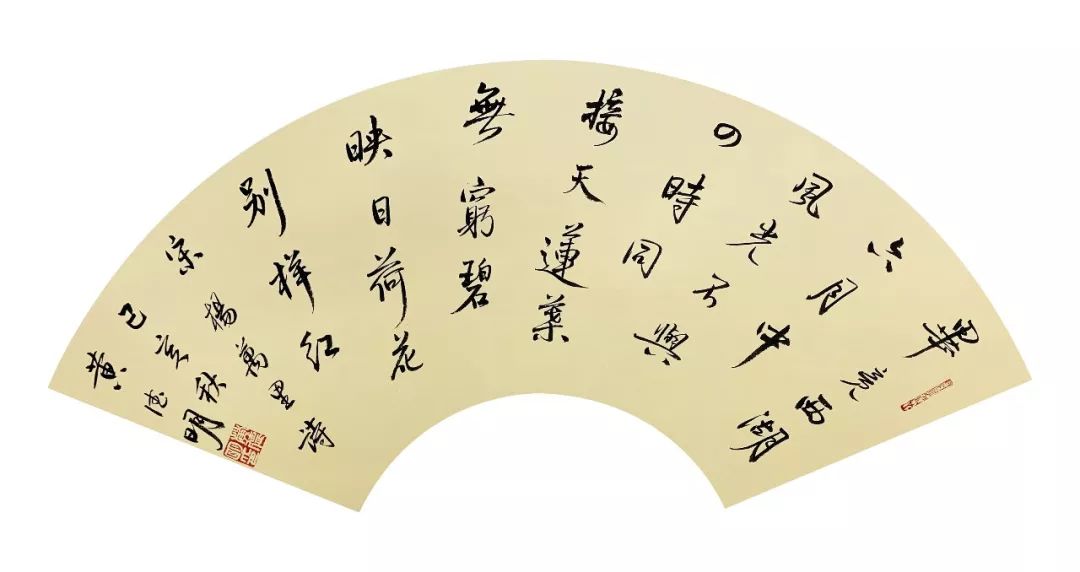 畢竟西湖
六月中
風光不與
四時同
接天蓮葉
無窮碧
映日荷花
別樣紅
宋楊萬里詩
己亥秋
黄德明